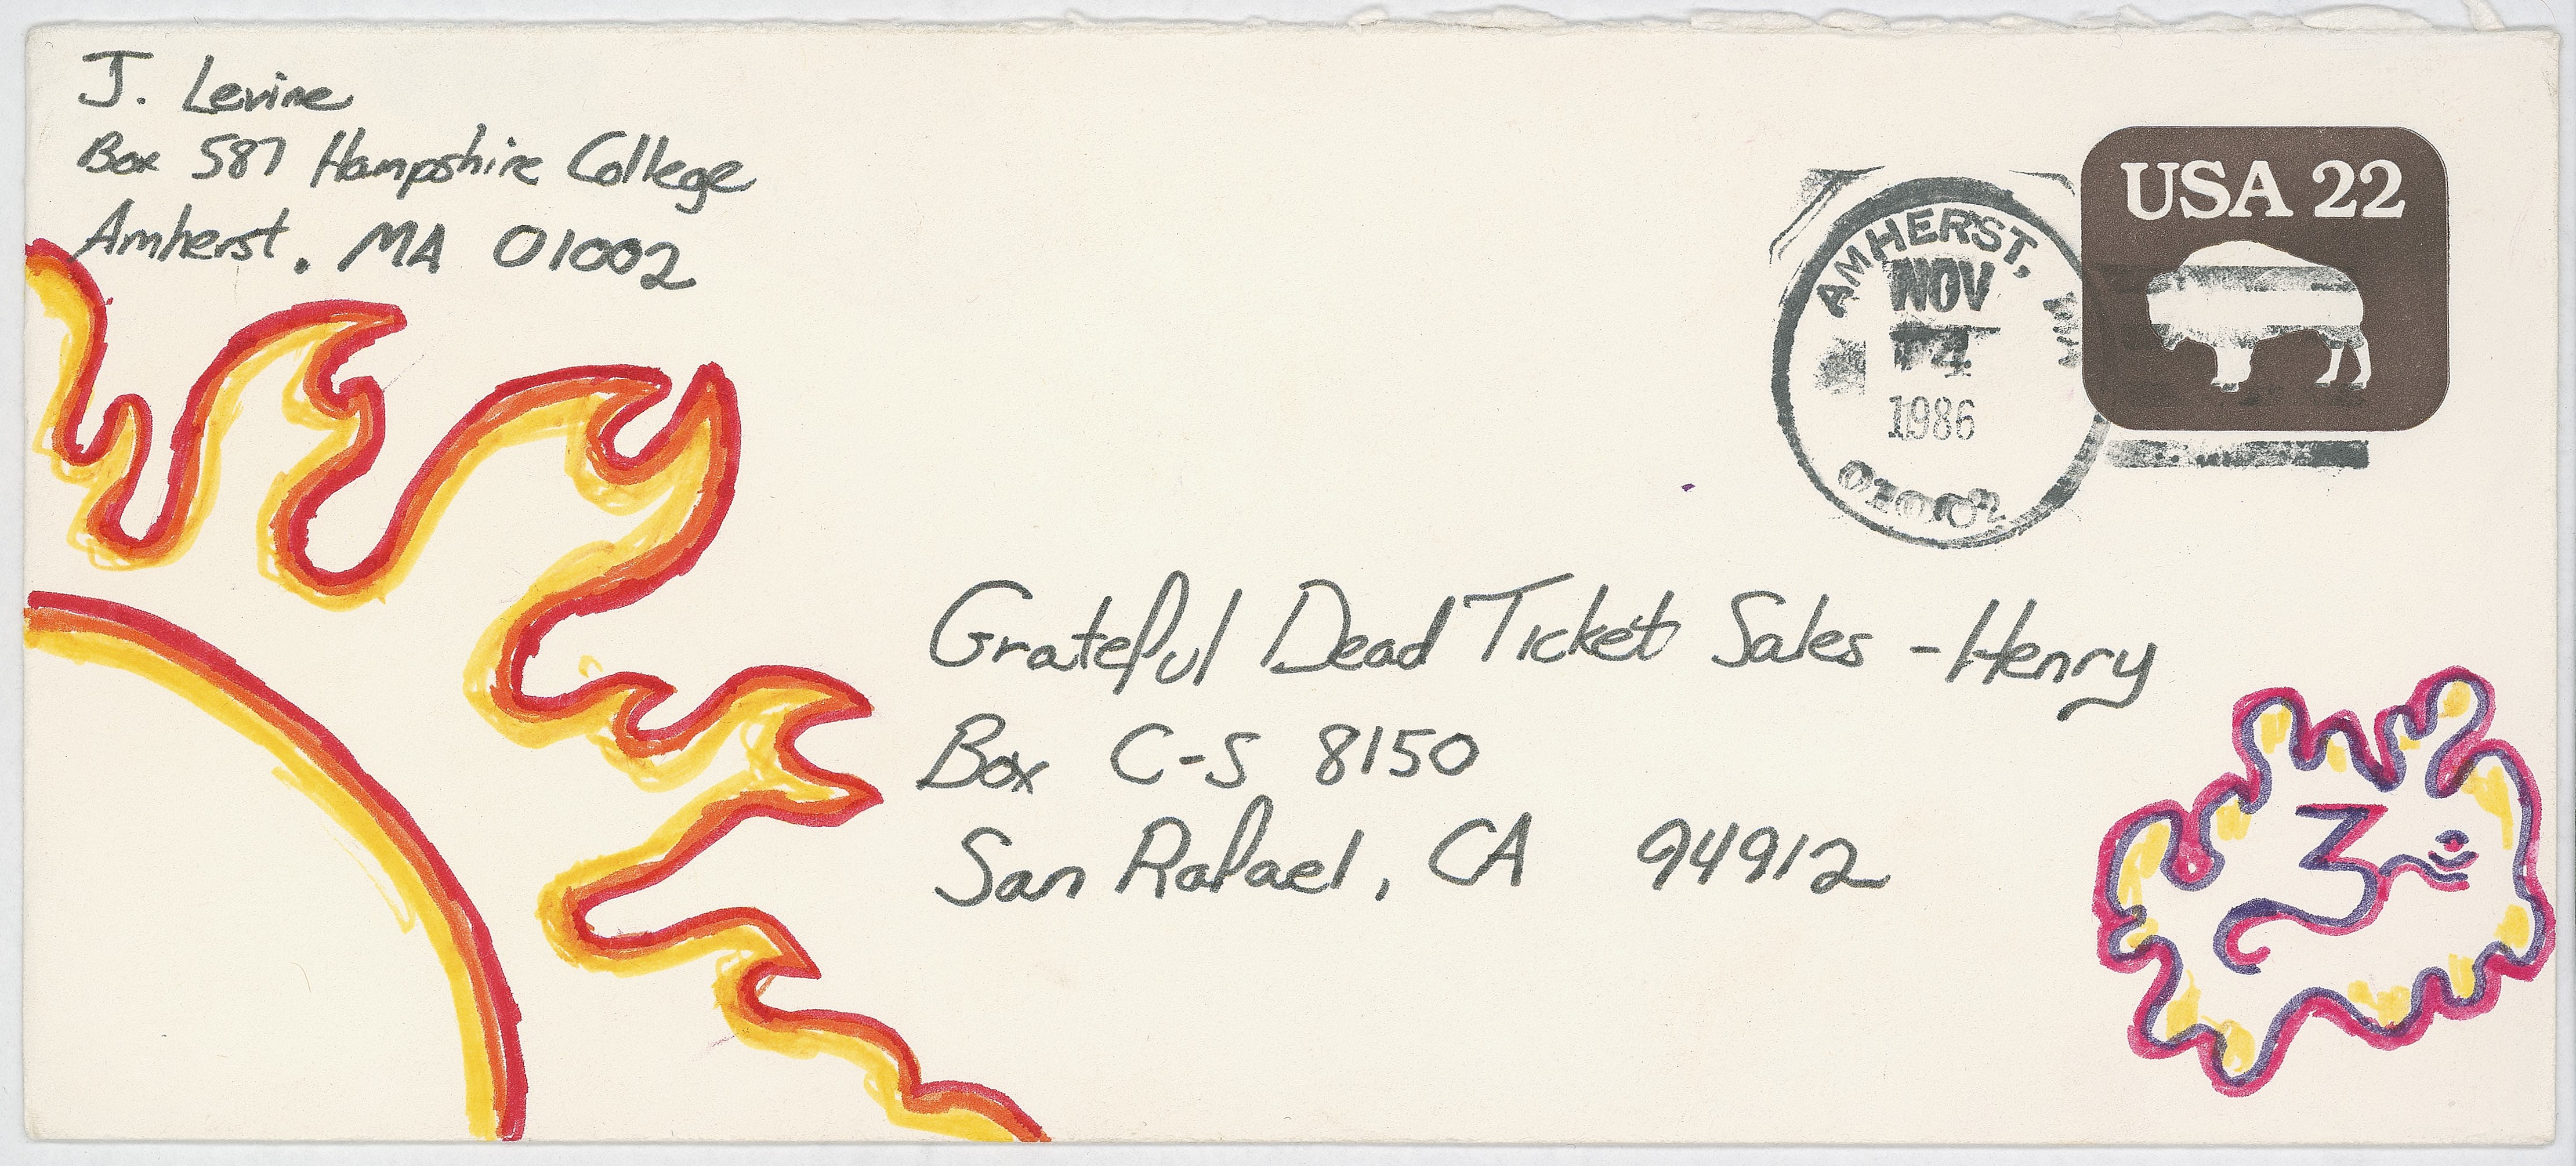 J. Levine
Box 587 Hampshire College
Amherst, MA 01002
USA 22
AMHERST, MA
NOV
1986
01002
Grateful Dead Ticket Sales - Henry
Box C-S 8150
San Rafael, CA 94912